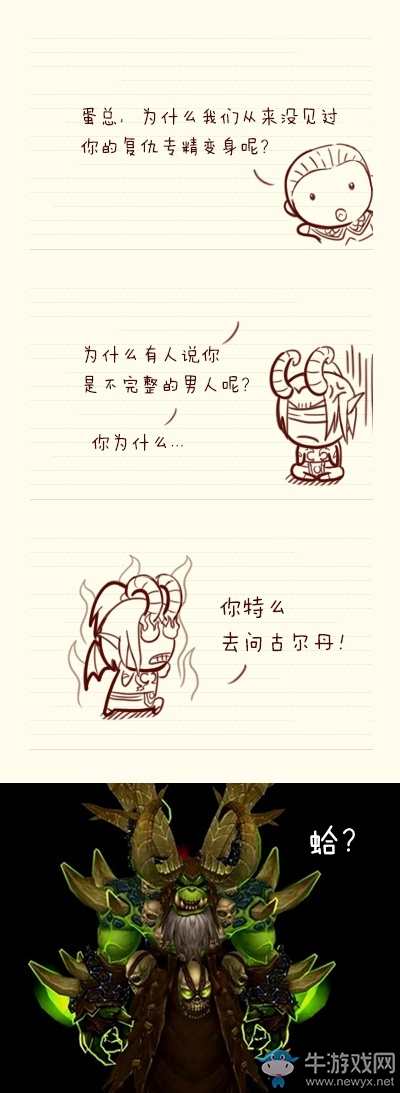 蛋总，为什么我们从来没见过
你的复仇专精变身呢？
为什么有人说你
是不完整的男人呢？
你为什么…
你特么
去问古尔丹！
蛤？
牛游戏网
www.newyx.net